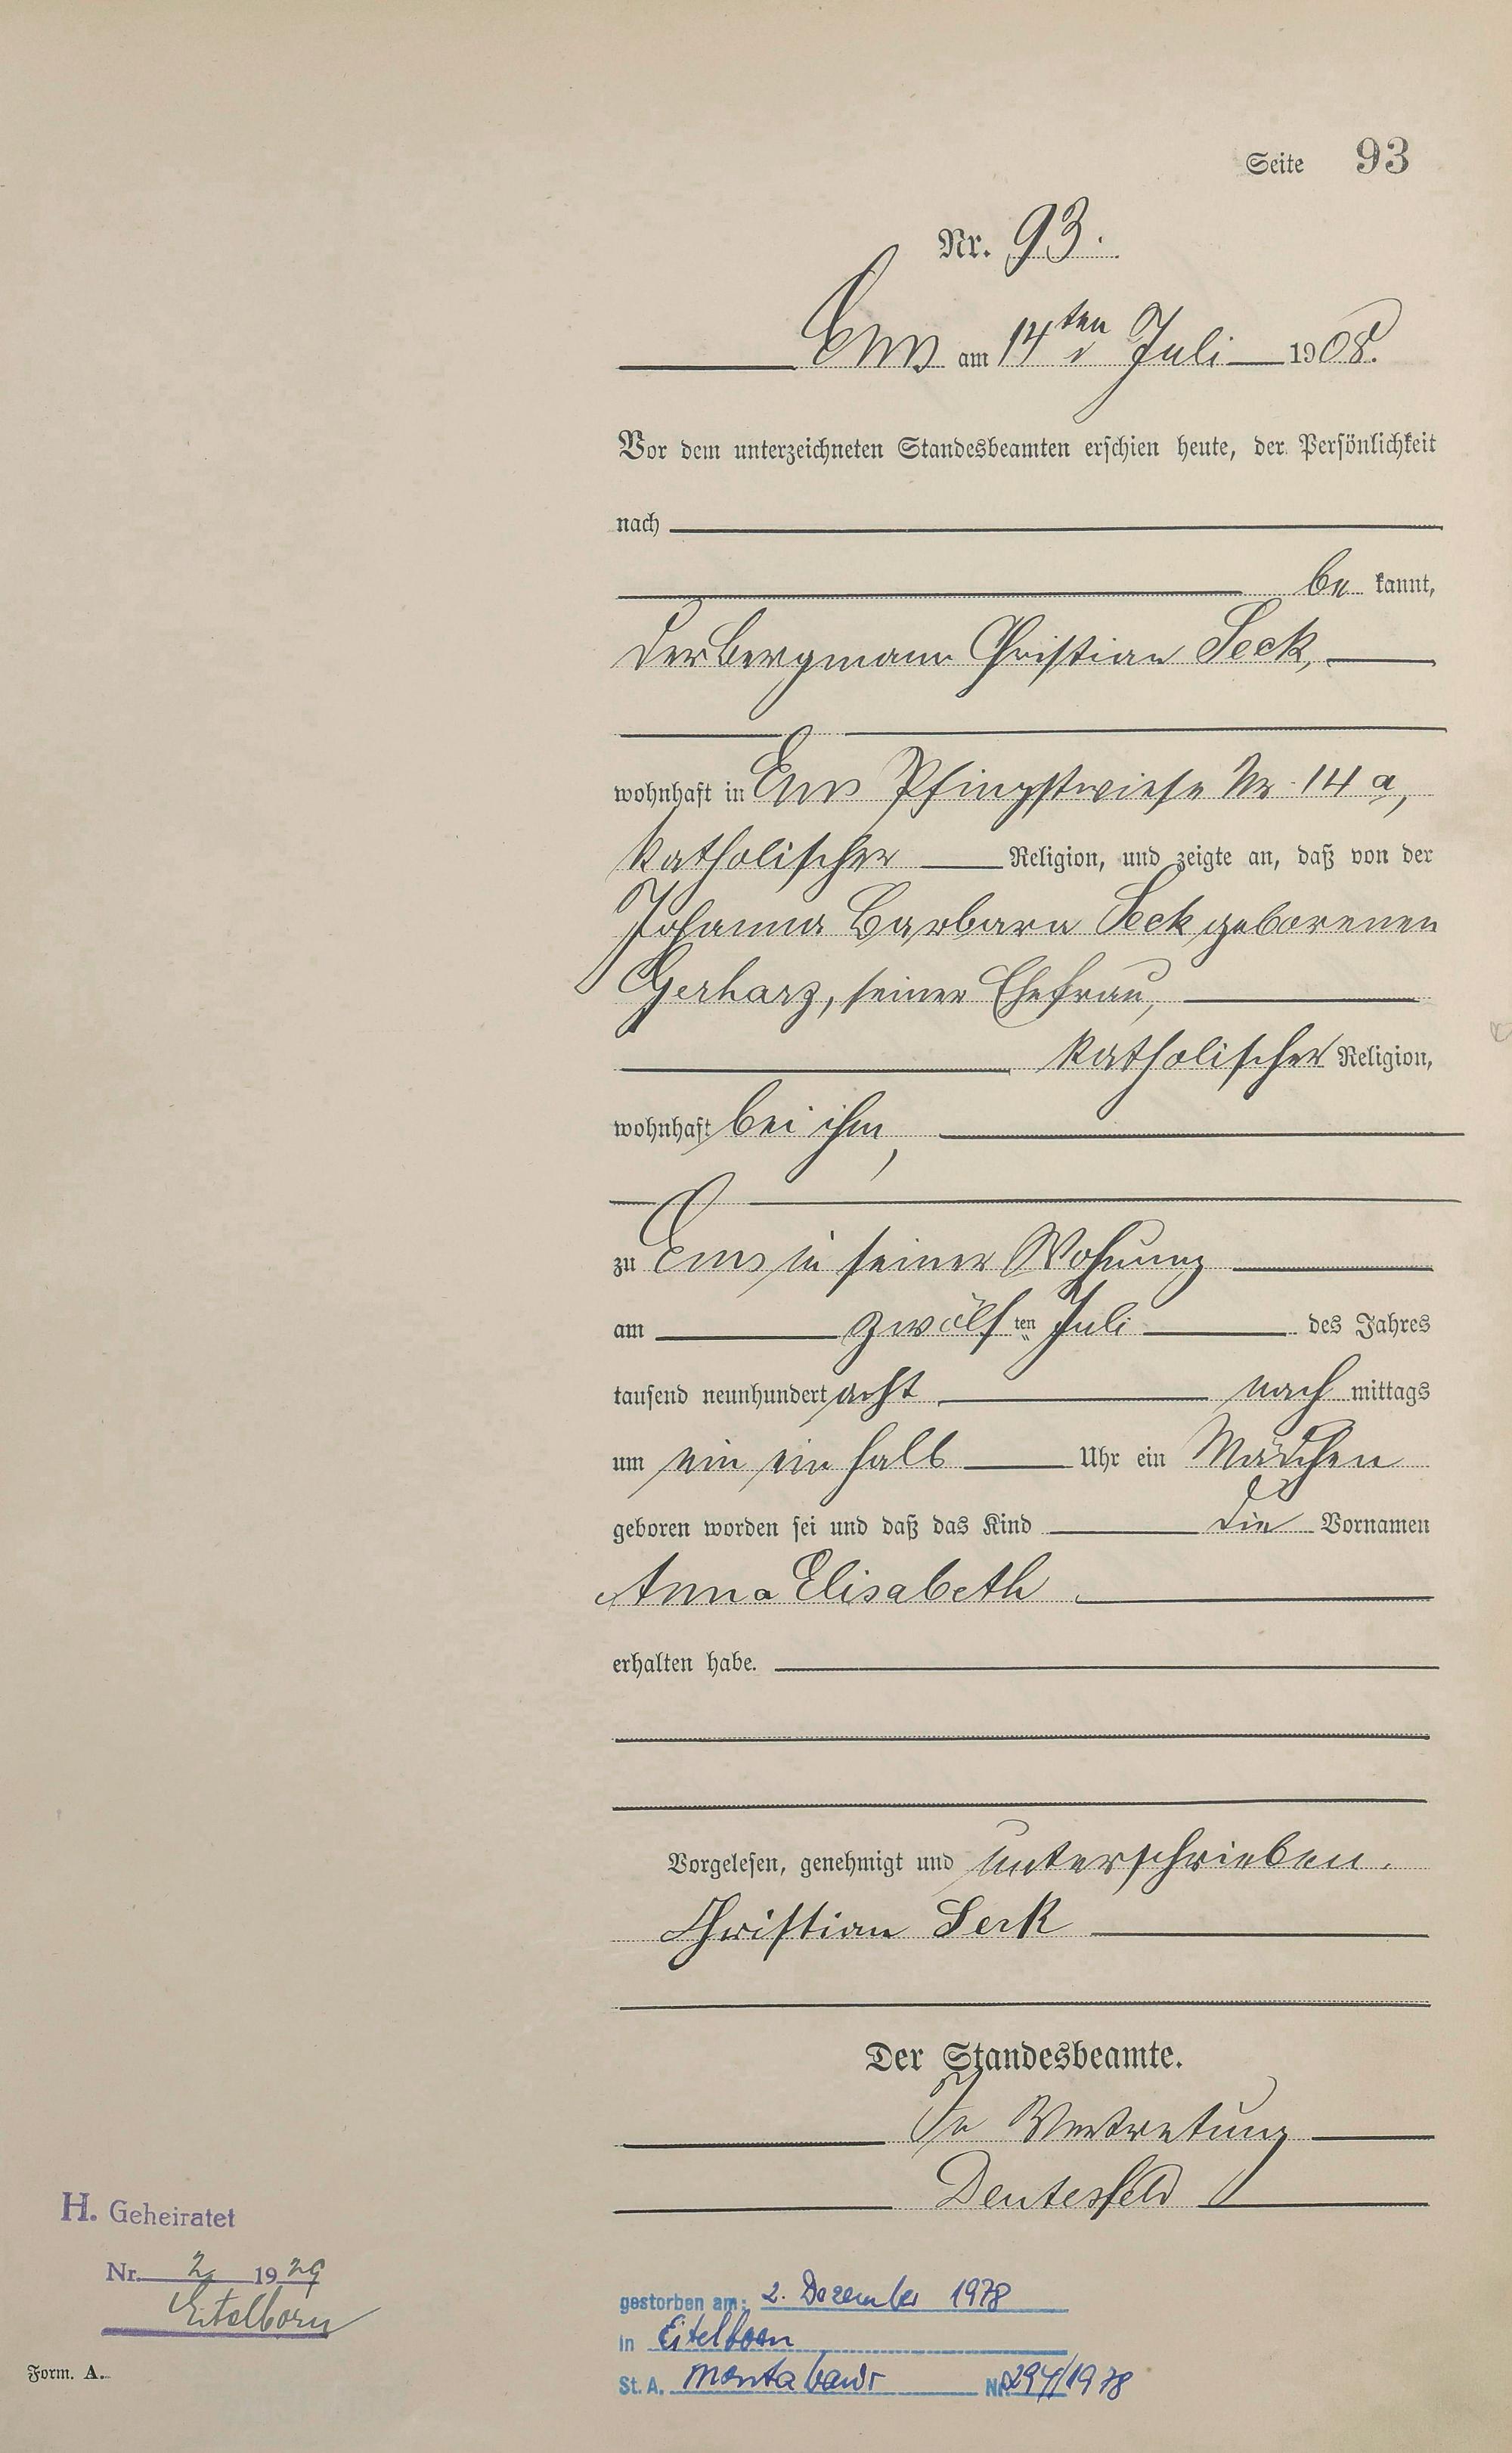 Seite 93
Nr. 93.
Ems am 14ten Juli 1908.
Vor dem unterzeichneten Standesbeamten erschien heute, der Persönlichkeit
nach
be kannt,
der Bergmann Christian Seck,
wohnhaft in Ems Pfingstwiese Nr. 14 a,
katholischer Religion, und zeigte an, daß von der
Johanna Barbara Seck geborenen
Gerharz, seiner Ehefrau,
katholischer Religion,
wohnhaft bei ihm,
zu Ems in seiner Wohnung
am zwölf ten Juli des Jahres
tausend neunhundert acht nach mittags
um ein ein halb Uhr ein Mädchen
geboren worden sei und daß das Kind die Vornamen
Anna Elisabeth
erhalten habe.
Vorgelesen, genehmigt und unterschrieben.
Christian Seck
Der Standesbeamte.
In Vertretung
H. Geheiratet
Nr. 2 1929
Eitelborn
gestorben am: 2. Dezember 1978
in Eitelborn
St. A. Montabaur Nr. 294/1978
Form. A.